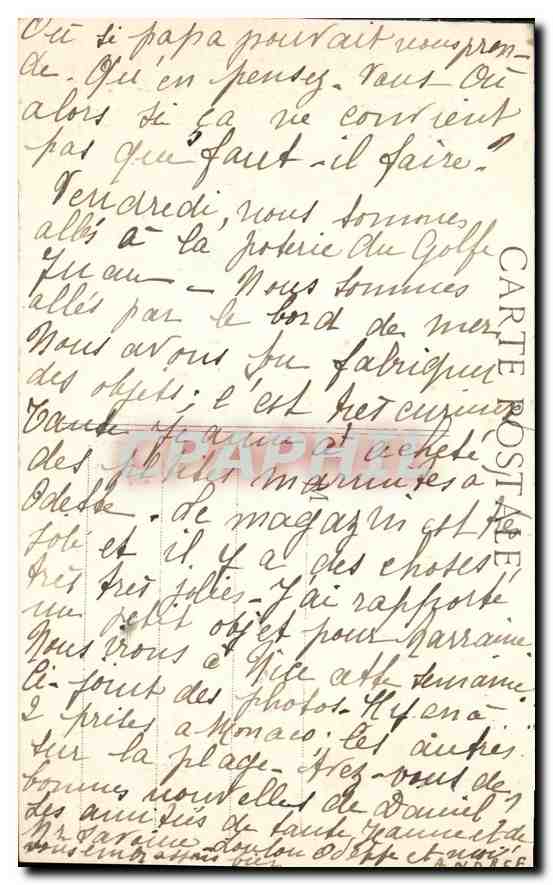 Où si papa pouvait nous pren-
dre. Qu'en pensez-Vous - Où
alors si ça ne convient
pas que faut-il faire?
Vendredi, nous sommes
allés à la poterie du Golfe
Juan - Nous sommes
allés par le bord de mer
Nous avons vu fabriquer
des objets; c'est très curieux
Tante Jeanne a acheté
des petites marmites à
Odette. Le magazin est très
joli et il y a des choses
très très jolies - J'ai rapporté
un petit objet pour Marraine
Nous irons à Nice cette semaine
Ci-joint des photos. Il y en a
2 prises a Monaco; les autres
sur la plage - Avez-vous de
bonnes nouvelles de Daniel?
Les amitiés de tante Jeanne et de
Mr Savoine Loulou Odette et moi
vous embrassons bien
ANDRÉE
CARTE POSTALE
CPAPHIL